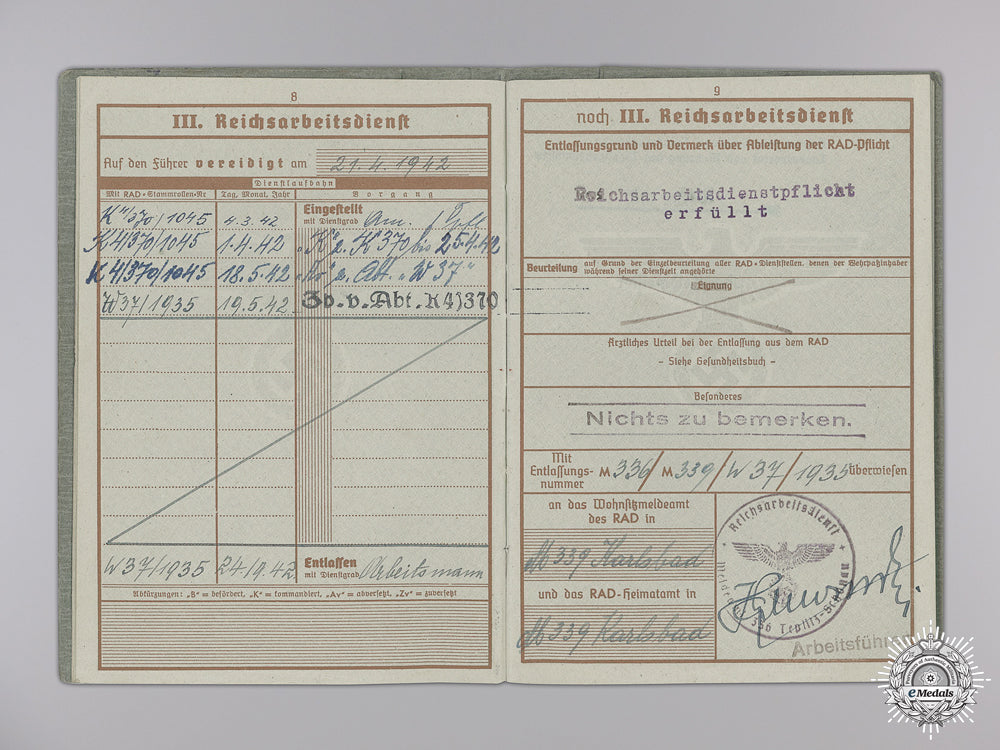 8
III. Reichsarbeitsdienst
Auf den Führer vereidigt am 21.4.1942
Dienstlaufbahn
Mit RAD-Stammrollen-Nr Tag, Monat, Jahr Vorgang
K 4/370/1045 4.3.42 Eingestellt mit Dienstgrad Am.
K4/370/1045 1.4.42 "K" z. K 370 bis 25.4.42
K4/370/1045 18.5.42 z. Abt. "W 37"
W37/1935 19.5.42 Zv. v. Abt. K4)370
W37/1935 24/9.42 Entlassen mit Dienstgrad Arbeitsmann
Abkürzungen: „B" = befördert, „K" = kommandiert, „Av" = abversetzt, „Zv" = zuversetzt
9
noch III. Reichsarbeitsdienst
Entlassungsgrund und Vermerk über Ableistung der RAD-Pflicht
Reichsarbeitsdienstpflicht
erfüllt
Beurteilung auf Grund der Einzelbeurteilung aller RAD-Dienststellen, denen der Wehrpaßinhaber
während seiner Dienstzeit angehörte
Eignung
Ärztliches Urteil bei der Entlassung aus dem RAD
- Siehe Gesundheitsbuch -
Besonderes
Nichts zu bemerken.
Mit
Entlassungs- M 336/ M 339/ W 37/ 1935 überwiesen
nummer
an das Wohnsitzmeldeamt
des RAD in
M 339 Karlsbad
und das RAD-Heimatamt in
M 339 Karlsbad
Reichsarbeitsdienst
336 Teplitz-Schönau
Arbeitsführ
eMedals